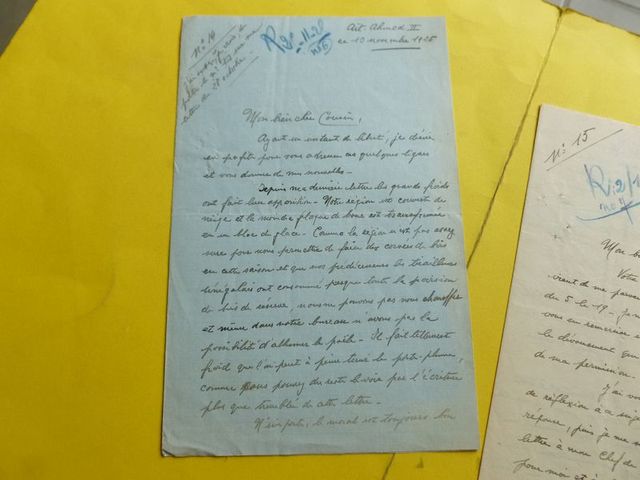 N° 14
R 2 - 11.28
N° 6
Aït Ahmed II
ce 10 novembre 1928
Mon bien cher Cousin,
Ayant un instant de liberté, je désire
en profiter pour vous adresser ces quelques lignes
et vous donner de mes nouvelles.-
Depuis ma dernière lettre les grands froids
ont fait leur apparition.- Notre région est couverte de
neige et la moindre flaque de boue est transformée
en un bloc de glace.- Comme la région n'est pas assez
sûre pour nous permettre de faire des corvées de bois
en cette saison et que nos prédécesseurs les tirailleurs
sénégalais ont consommé presque toute la provision
de bois de réserve, nous ne pouvons pas nous chauffer
et même dans notre bureau n'avons pas la
possibilité d'allumer le poêle.- Il fait tellement
froid que l'on peut à peine tenir le porte-plume,
comme vous pouvez du reste le voir par l'écriture
plus que tremblée de cette lettre.-
N'importe, le moral est toujours bon
N° 15
R: 2/1
Mon b
Votre
venant de me parve
du 5-12-17- ja
vous en remercie
le dévouement que
de ma permission
J'ai vo
de réflexion à
réponse, puis je me
lettre à mon Chef de
pour moi et à